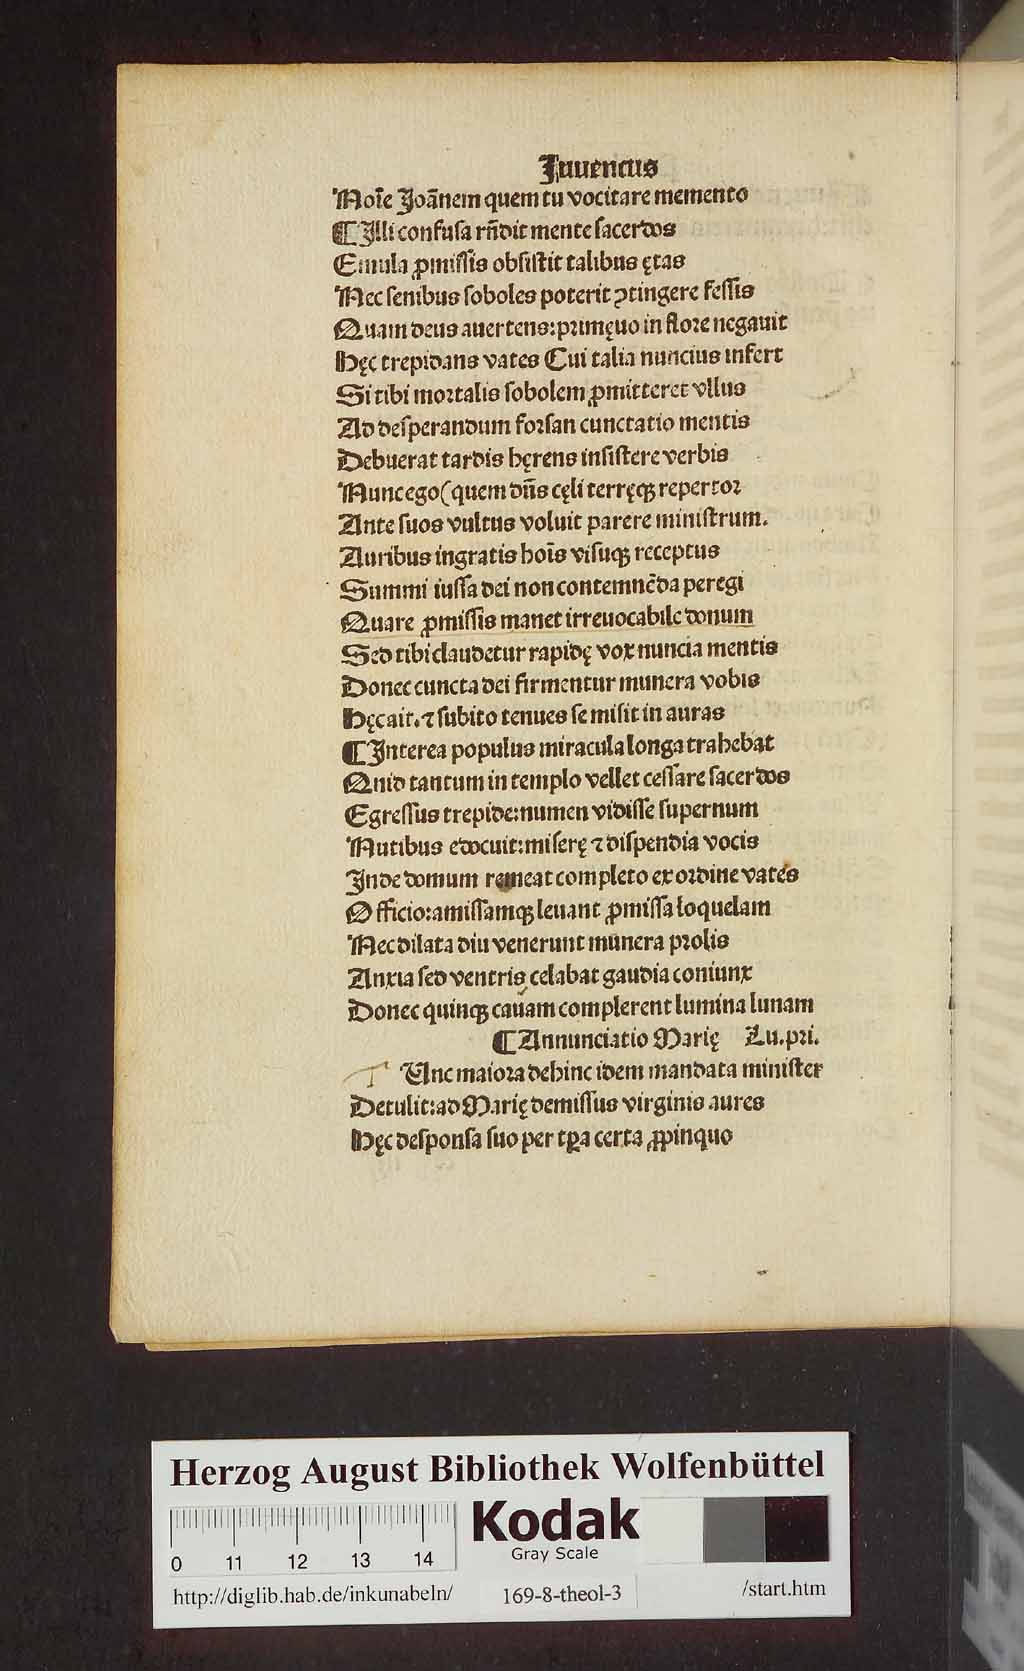 Juuencus
Noīe Joānem quem tu vocitare memento
¶ Illi confusa rn̄dit mente sacerdos
Emula ꝓmissis obsistit talibus ętas
Nec senibus soboles poterit ↄtingere fessis
Quam deus auertens: primęuo in flore negauit
Hęc trepidans vates Cui talia nuncius infert
Si tibi mortalis sobolem ꝓmitteret vllus
Ad desperandum forsan cunctatio mentis
Debuerat tardis hęrens insistere verbis
Nunc ego (quem dn̄s cęli terręqꝫ repertor
Ante suos vultus voluit parere ministrum.
Auribus ingratis hoīs visuqꝫ receptus
Summi iussa dei non contemnēda peregi
Quare ꝓmissis manet irreuocabile donum
Sed tibi claudetur rapidę vox nuncia mentis
Donec cuncta dei firmentur munera vobis
Hęc ait. ⁊ subito tenues se misit in auras
¶ Interea populus miracula longa trahebat
Quid tantum in templo vellet cessare sacerdos
Egressus trepide: numen vidisse supernum
Nutibus edocuit: miserę ⁊ dispendia vocis
Inde domum remeat completo ex ordine vates
Officio: amissamqꝫ leuant ꝓmissa loquelam
Nec dilata diu venerunt munera prolis
Anxia sed ventris celabat gaudia coniunx
Donec quinqꝫ cauam complerent lumina lunam
¶ Annunciatio Marię Lu. pri.
T Unc maiora dehinc idem mandata minister
Detulit: ad Marię demissus virginis aures
Hęc desponsa suo per tꝑa certa ꝓpinquo
Herzog August Bibliothek Wolfenbüttel
Kodak
Gray Scale
0 11 12 13 14
http://diglib.hab.de/inkunabeln/ 169-8-theol-3 /start.htm